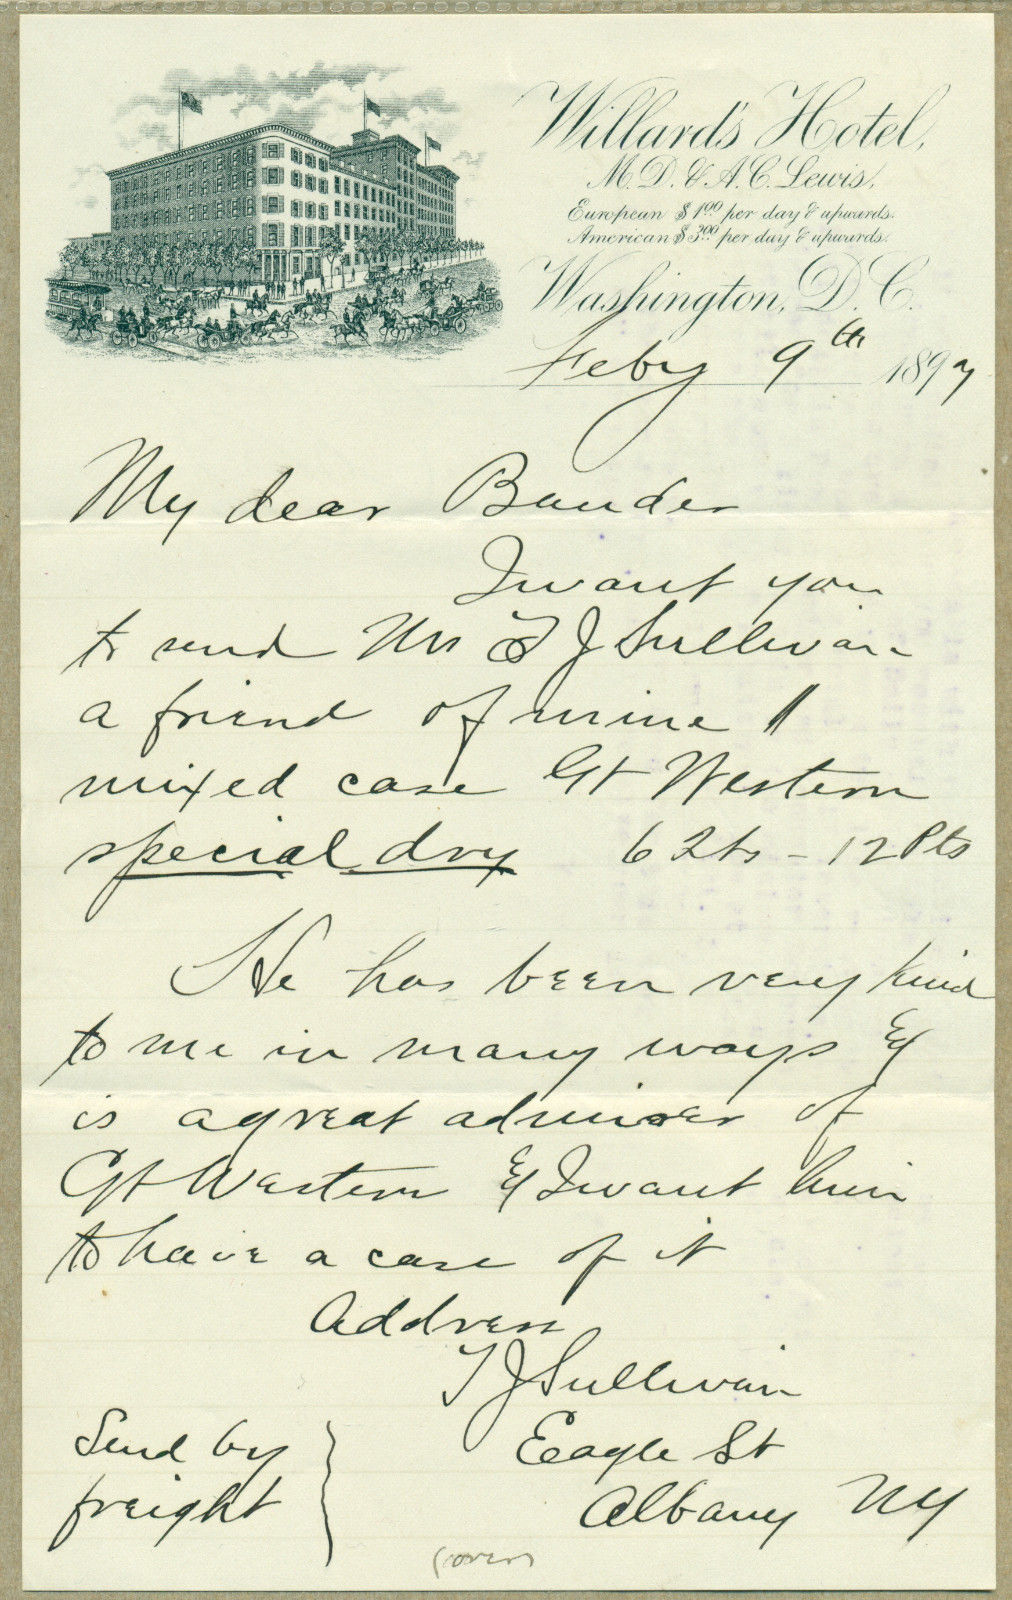 Willard's Hotel,
M. D. & A. C. Lewis,
European $1.00 per day & upwards.
American $3.00 per day & upwards.
Washington, D. C.
Feby 9th 1897
My dear Bauder
I want you
to send Mr T J Sullivan
a friend of mine 1
mixed case Gt Western
special dry 6 Qts - 12 Pts
He has been very kind
to me in many ways &
is a great admirer of
Gt Western & I want him
to have a case of it
Address
T J Sullivan
Eagle St
Albany NY
Send by
freight
(over)